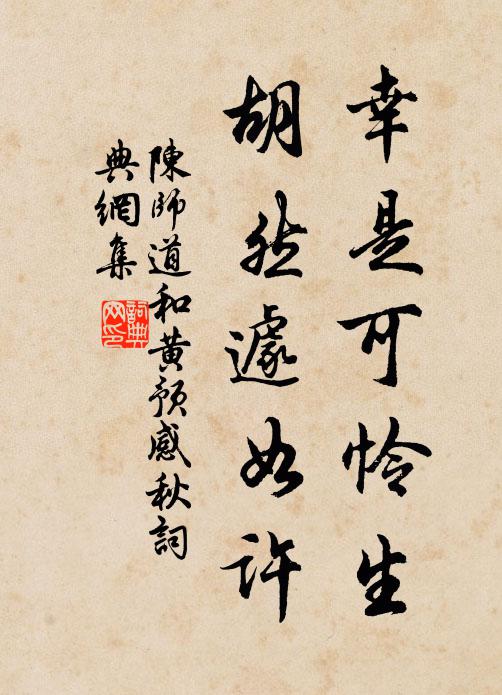 幸是可怜生
胡然遽如许
陳師道和黄预感秋詞
典網集
詞典
网印